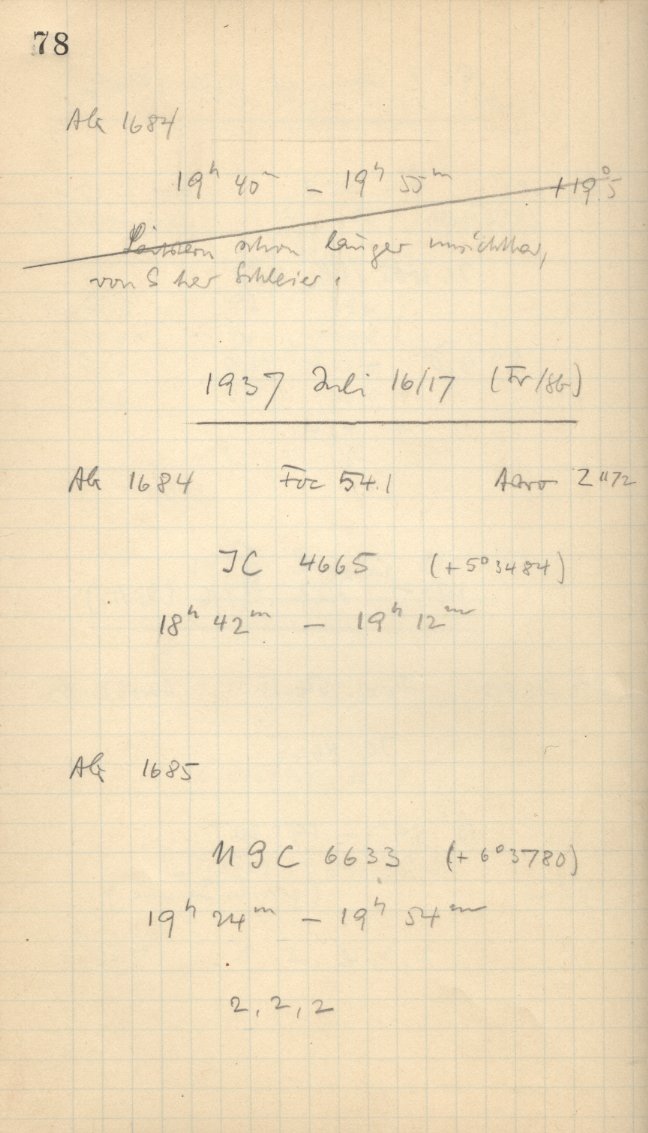 78
AG 1684
19h 40m – 19h 55m +19°.5
schon länger unsichtbar,
von S her Schleier.
1937 Juli 16/17 (Fr/Sb)
AG 1684 Foc 54.1 Agro Z 1172
IC 4665 (+5°3484)
18h 42m – 19h 12m
AG 1685
NGC 6633 (+6°3780)
19h 24m – 19h 54m
2, 2, 2